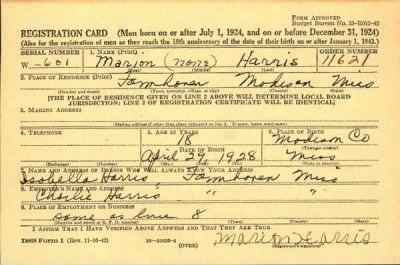 FORM APPROVED
Budget Bureau No. 33-R012-42
REGISTRATION CARD (Men born on or after July 1, 1924, and on or before December 31, 1924)
(Also for the registration of men as they reach the 18th anniversary of the date of their birth on or after January 1, 1943.)
SERIAL NUMBER 1. NAME (Print) ORDER NUMBER
W-601 Marion (none) Harris 11621
(First) (Middle) (Last)
2. PLACE OF RESIDENCE (Print)
Farmhaven Madison Miss
(Number and street) (Town, township, village, or city) (County) (State)
[THE PLACE OF RESIDENCE GIVEN ON LINE 2 ABOVE WILL DETERMINE LOCAL BOARD
JURISDICTION; LINE 2 OF REGISTRATION CERTIFICATE WILL BE IDENTICAL]
3. MAILING ADDRESS
4. TELEPHONE 5. AGE IN YEARS 6. PLACE OF BIRTH
18 Madison Co
DATE OF BIRTH
April 29 1928 Miss
7. NAME AND ADDRESS OF PERSON WHO WILL ALWAYS KNOW YOUR ADDRESS
Isabella Harris Farmhaven Miss
8. EMPLOYER'S NAME AND ADDRESS
Charlie Harris " "
9. PLACE OF EMPLOYMENT OR BUSINESS
same as line 8
I AFFIRM THAT I HAVE VERIFIED ABOVE ANSWERS AND THAT THEY ARE TRUE.
DSS Form 1 (Rev. 11-16-42) (OVER) Marion Harris